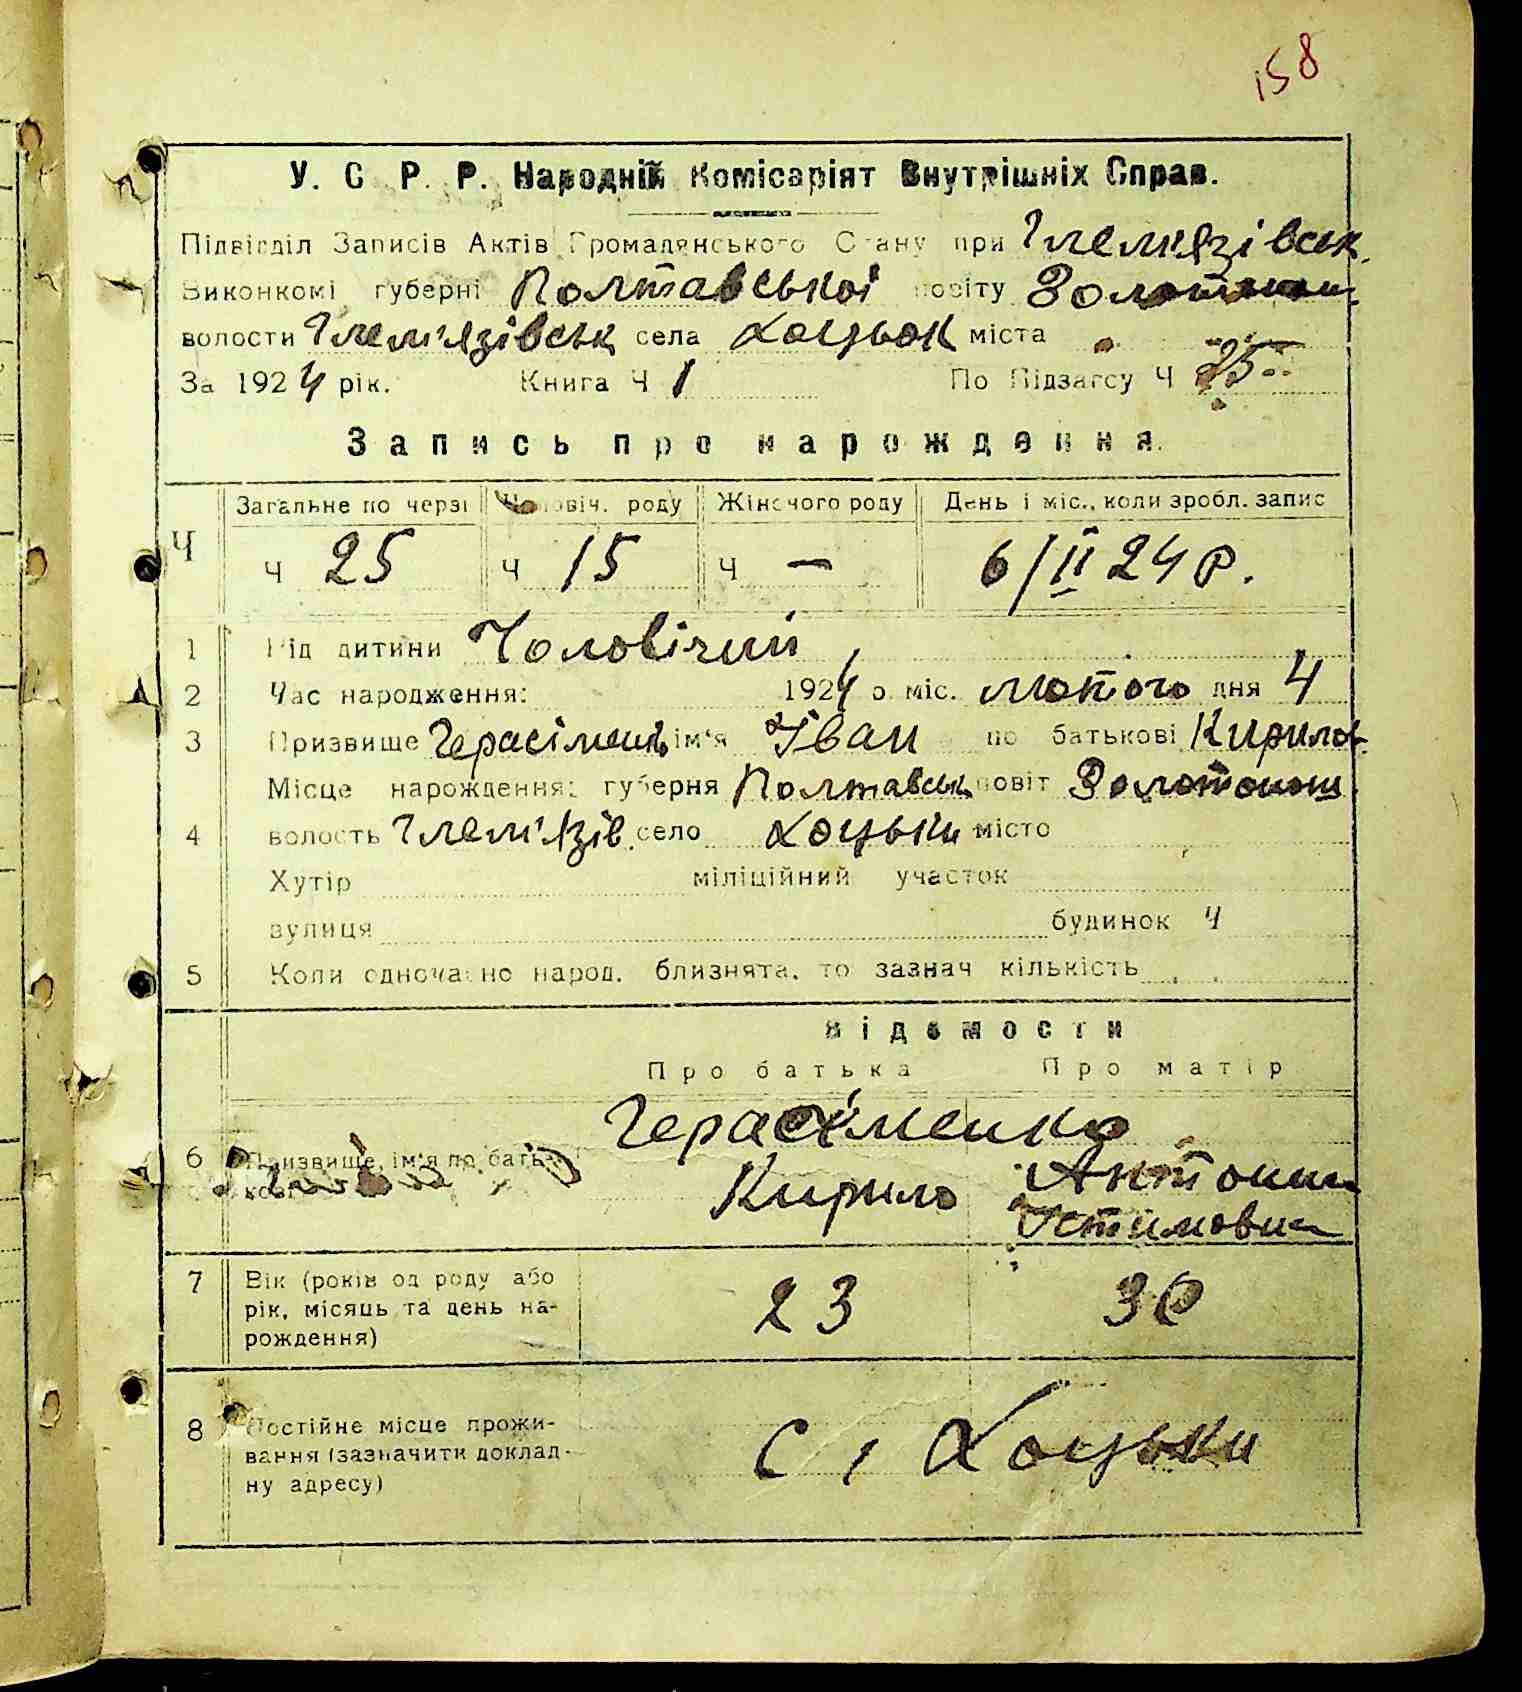 158
У. С. Р. Р. Народній Комісаріят Внутрішніх Справ.
Підвідділ Записів Актів Громадянського Стану при Гельмязівськ.
Виконкомі губерні Полтавської повіту Золотоніш.
волости Гельм'язівськ села Хоцьок міста
За 1924 рік. Книга Ч 1 По Підзагсу Ч 25
Запись про нарождення.
Ч Загальне по черзі Чоловіч. роду Жіночого роду День і міс., коли зробл. запис
Ч 25 Ч 15 Ч — 6/II 24 р.
1 Рід дитини Чоловічий
2 Час народження: 1924 р. міс. лютого дня 4
3 Призвище Герасіменк ім'я Іван по батькові Кирилов.
Місце нарождення: губерня Полтавськ повіт Золотонош.
4 волость Гельм'язів. село Хоцьки місто
Хутір міліційний участок
вулиця будинок Ч
5 Коли одночасно народ. близнята, то зазнач кількість
Відомости
Про батька Про матір
Герасіменко
6 Призвище, ім'я по бать-
кові Кирило Антонина
Устимовна
7 Вік (років од роду або
рік, місяць та день на-
рождення) 23 30
8 Постійне місце прожи-
вання (зазначити доклад-
ну адресу) с. Хоцьки